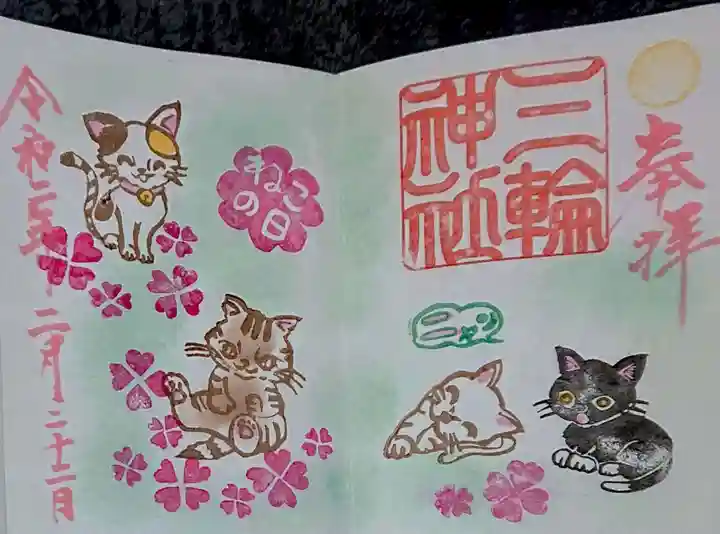 奉拝
三輪
神社
ねこ
の日
令和二年二月二十二日